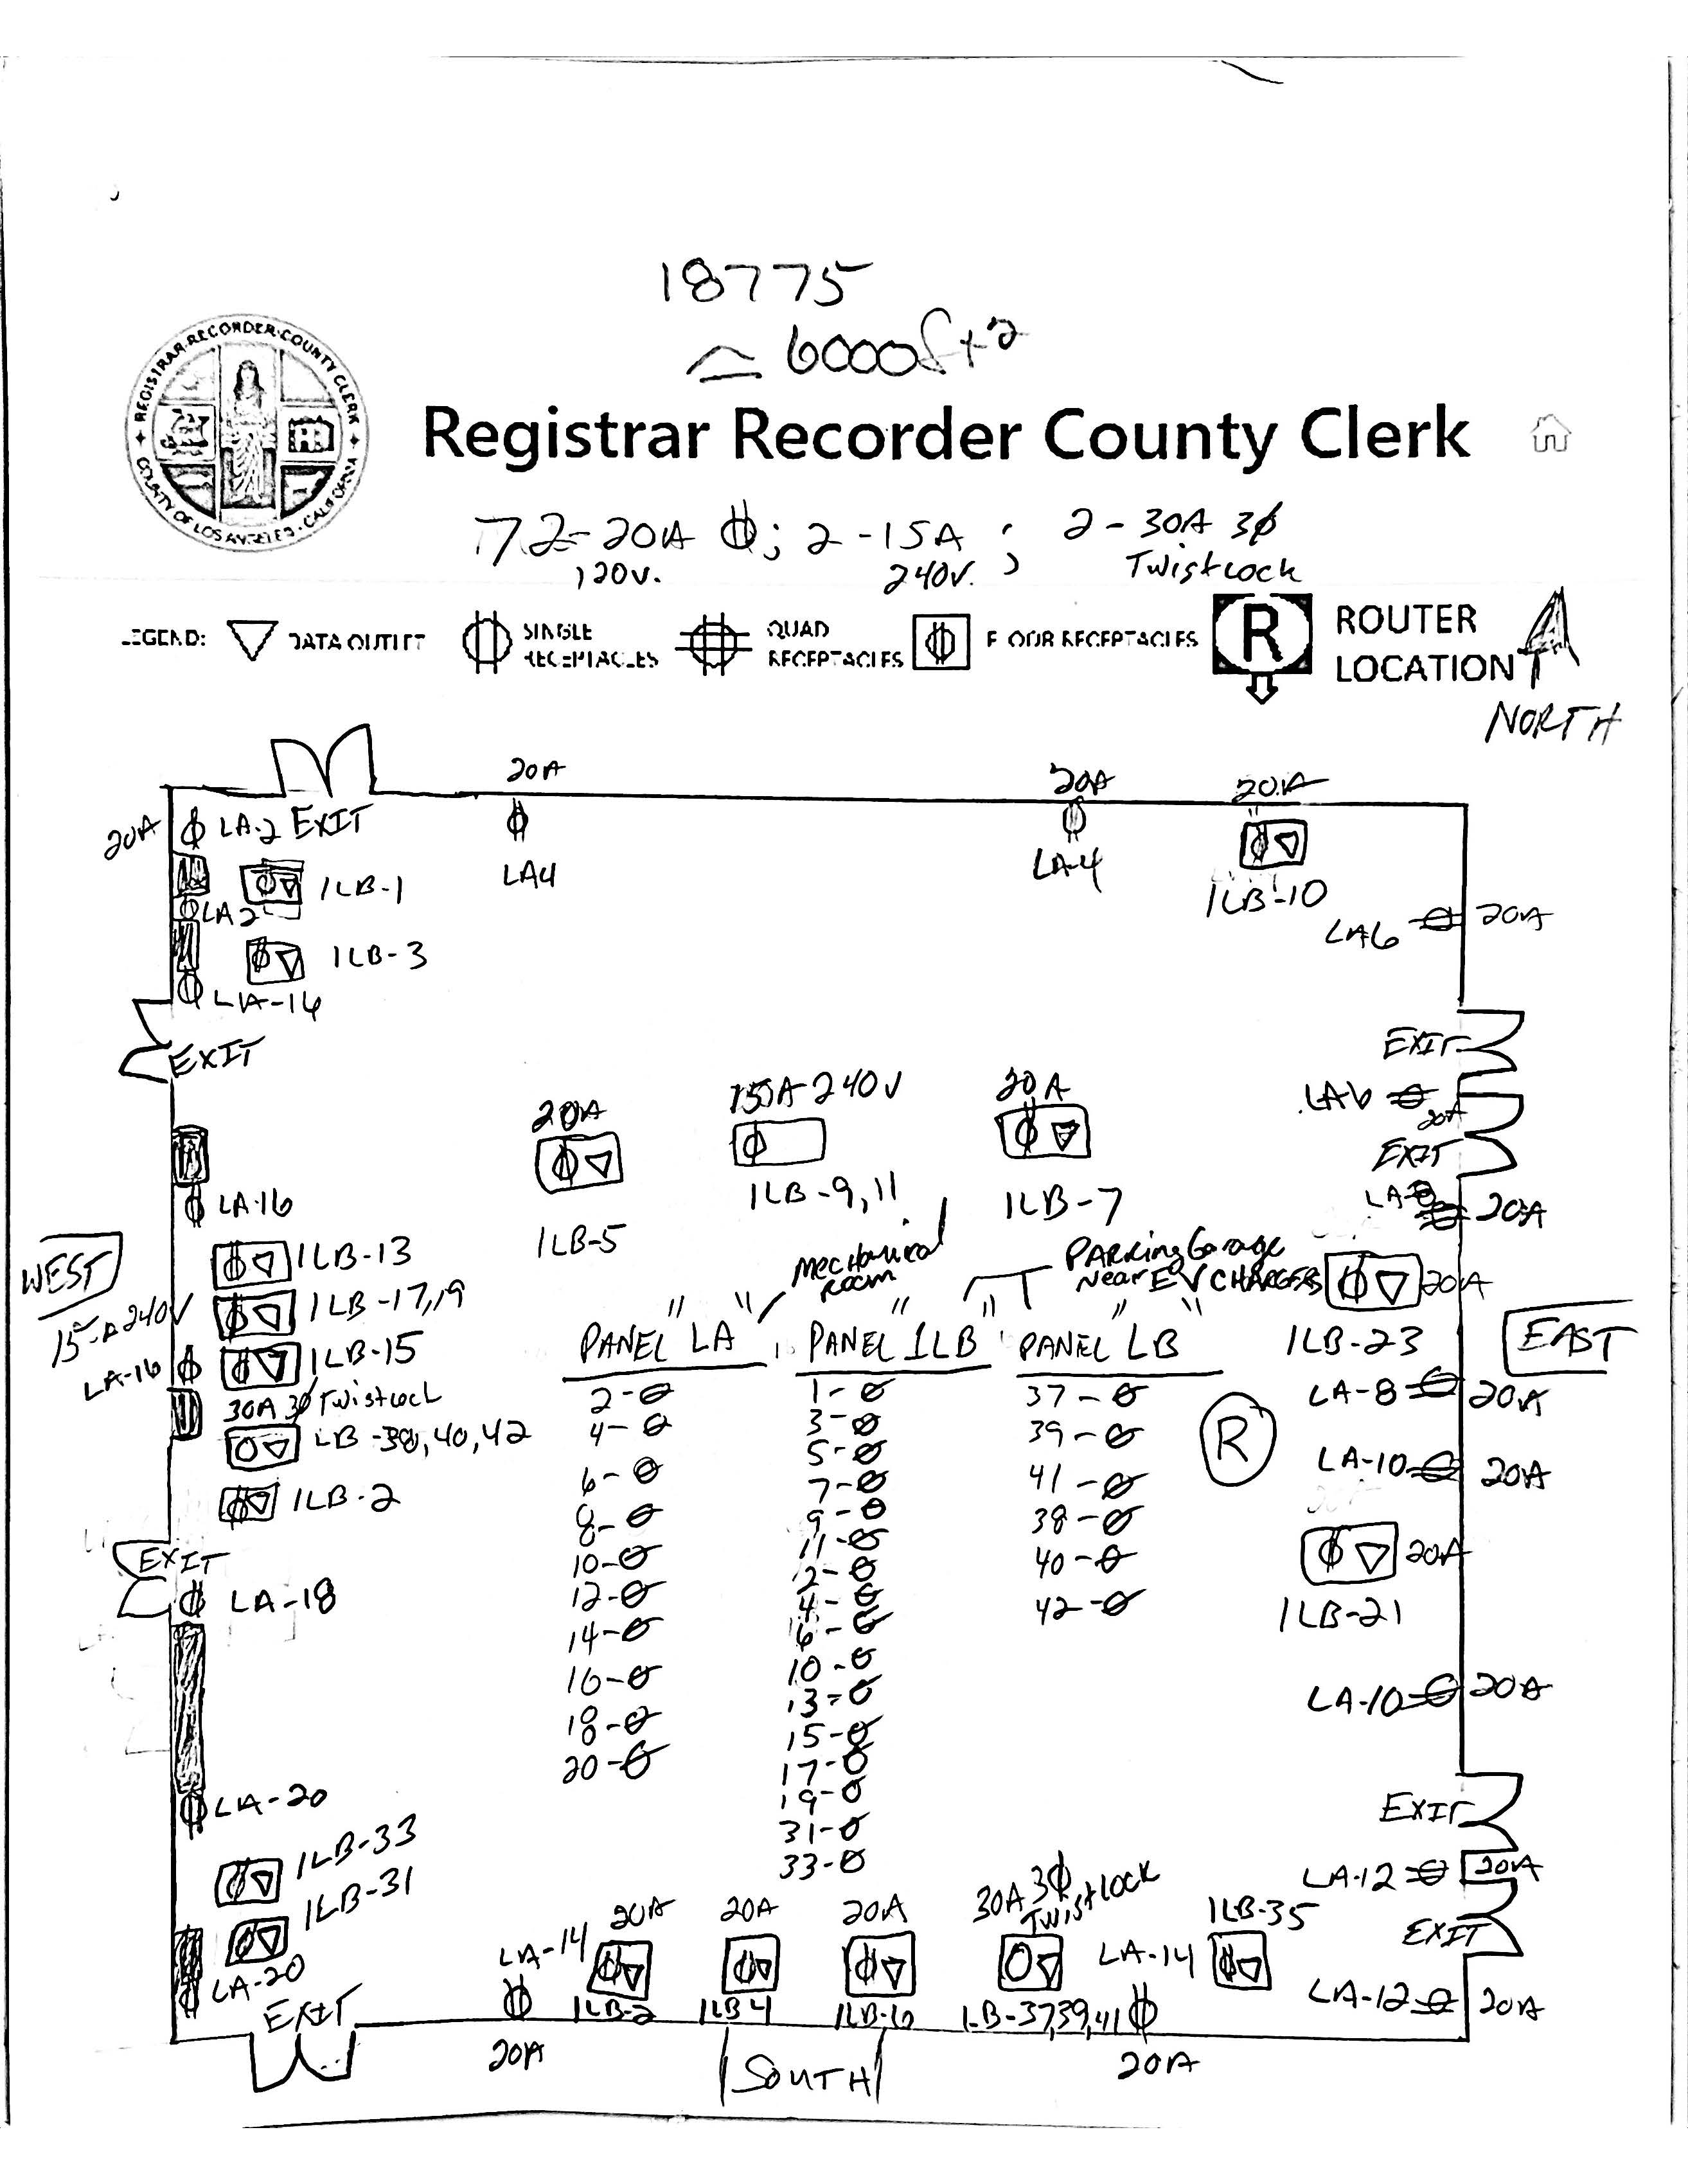 18775
≃ 6000ft²
REGISTRAR-RECORDER·COUNTY CLERK
COUNTY OF LOS ANGELES · CALIFORNIA
Registrar Recorder County Clerk
72-20A ; 2-15A ; 2-30A 3ϕ
120V. 240V. Twistlock
LEGEND: DATA OUTLET SINGLE RECEPTACLES QUAD RECEPTACLES FLOOR RECEPTACLES R ROUTER LOCATION
NORTH
20A 20A 20A
20A LA-2 EXIT
LA4 LA-4 1LB-10
1LB-1
LA2
LA6 20A
1LB-3
LA-16
EXIT
EXIT
20A 15A 240V 20A
LA6 20A
EXIT
1LB-5 1LB-9,11 1LB-7
LA-16
LA-8 20A
WEST
1LB-13
Mechanical Room
Parking Garage Near EV CHARGERS
20A
15A 240V 1LB-17,19
LA-16 1LB-15
PANEL "LA" PANEL "1LB" PANEL "LB"
1LB-23 EAST
30A 3ϕ Twistlock
LB-38,40,42
1LB-2
2- 1- 37-
4- 3- 39-
5-
6- 7- 41-
8- 9- 38-
11-
10- 2- 40-
12- 4- 42-
14- 6-
16- 10-
13-
18- 15-
20- 17-
19-
31-
33-
R
LA-8 20A
LA-10 20A
20A
1LB-21
LA-10 20A
EXIT
LA-18
LA-20
1LB-33
1LB-31
EXIT
LA-12 20A
EXIT
LA-12 20A
LA-20
EXIT
LA-14 20A 20A 20A 30A 3ϕ Twistlock LA-14 1LB-35
1LB-2 1LB4 1LB-6 LB-37,39,41
20A SOUTH 20A